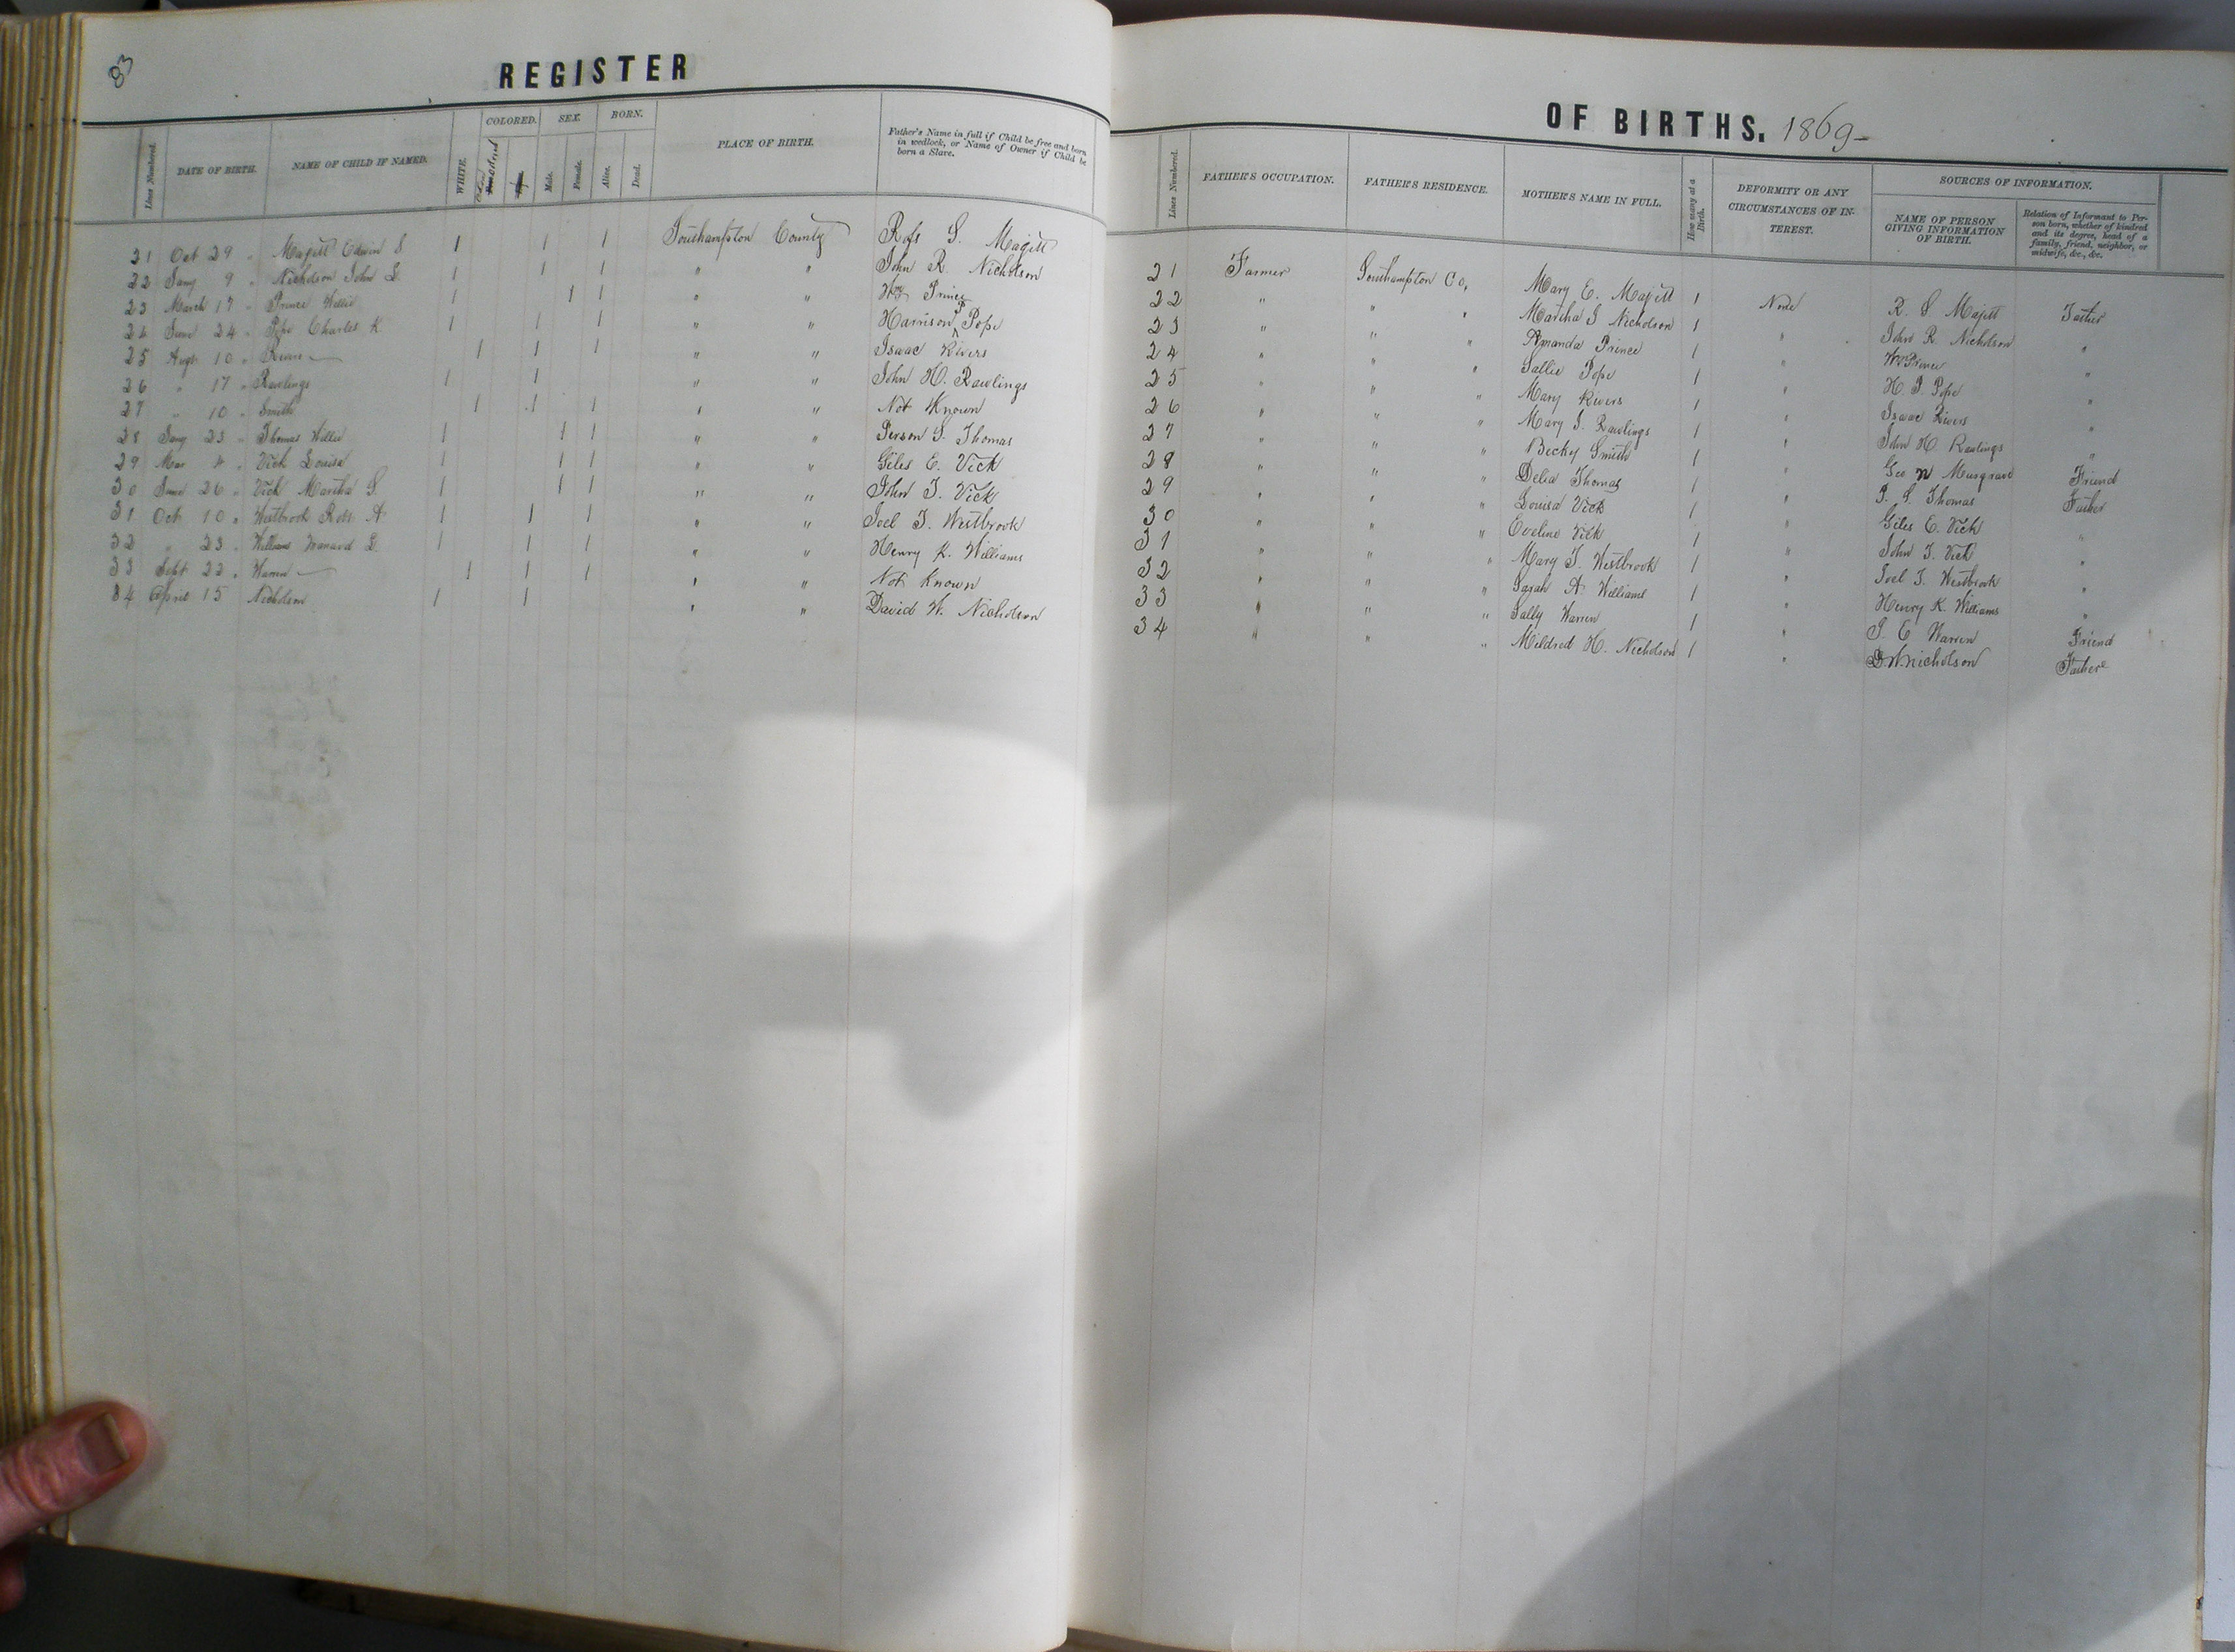 83
REGISTER
Lines Numbered.
DATE OF BIRTH.
NAME OF CHILD IF NAMED.
WHITE.
COLORED.
SEX.
Male.
Female.
BORN.
Alive.
Dead.
PLACE OF BIRTH.
Father's Name in full if Child be free and born
in wedlock, or Name of Owner if Child be
born a Slave.
21 Oct 29 " Majett Edwin S 1 1 1 Southampton County S. Majett
22 Jany 9 " Nicholson John L. 1 1 1 " " John R. Nicholson
23 March 17 " Prince Willie 1 1 1 " " Prince
24 June 24 " Pope Charles K. 1 1 1 " " Harrison P Pope
25 Augt 10 " 1 1 1 " " Isaac Rivers
26 " 17 " Rawlings 1 1 " " John H. Rawlings
27 " 10 " Smith 1 1 1 " " Not Known
28 Jany 23 " Thomas Willie 1 1 1 " " Person S. Thomas
29 Mar 4 " Vick Louisa 1 1 1 " " Giles E. Vick
30 June 26 " Vick Martha S. 1 1 1 " " John T. Vick
31 Oct 10 " Westbrook Robt A. 1 1 1 " " Joel T. Westbrook
32 " 23 " Williams 1 1 1 " " Henry K. Williams
33 Sept 22 " Warren 1 1 1 " " Not Known
34 April 15 Nicholson 1 1 " " David W. Nicholson
OF BIRTHS. 1869-
Lines Numbered.
FATHER'S OCCUPATION.
FATHER'S RESIDENCE.
MOTHER'S NAME IN FULL.
How many at a
Birth.
DEFORMITY OR ANY
CIRCUMSTANCES OF IN-
TEREST.
SOURCES OF INFORMATION.
NAME OF PERSON
GIVING INFORMATION
OF BIRTH.
Relation of Informant to Per-
son born, whether of kindred
and its degree, head of a
family, friend, neighbor, or
midwife, &c., &c.
21 Farmer Southampton Co, Mary E. Majett 1 None R. S. Majett Father
22 " " " Martha J Nicholson 1 " John R. Nicholson "
23 " " " Amanda Prince 1 " Wm Prince "
24 " " " Sallie Pope 1 " H. P. Pope "
25 " " " Mary Rivers 1 " Isaac Rivers "
26 " " " Mary J. Rawlings 1 " John H. Rawlings "
27 " " " Becky Smith 1 " Geo n Musgrave Friend
28 " " " Delia Thomas 1 " P. S. Thomas Father
29 " " " Louisa Vick 1 " Giles E. Vick "
30 " " " Eveline Vick 1 " John T. Vick "
31 " " " Mary T. Westbrook 1 " Joel T. Westbrook "
32 " " " Sarah A Williams 1 " Henry K. Williams "
33 " " " Sally Warren 1 " J. E Warren Friend
34 " " " Mildred H. Nicholson 1 " D W nicholson Father